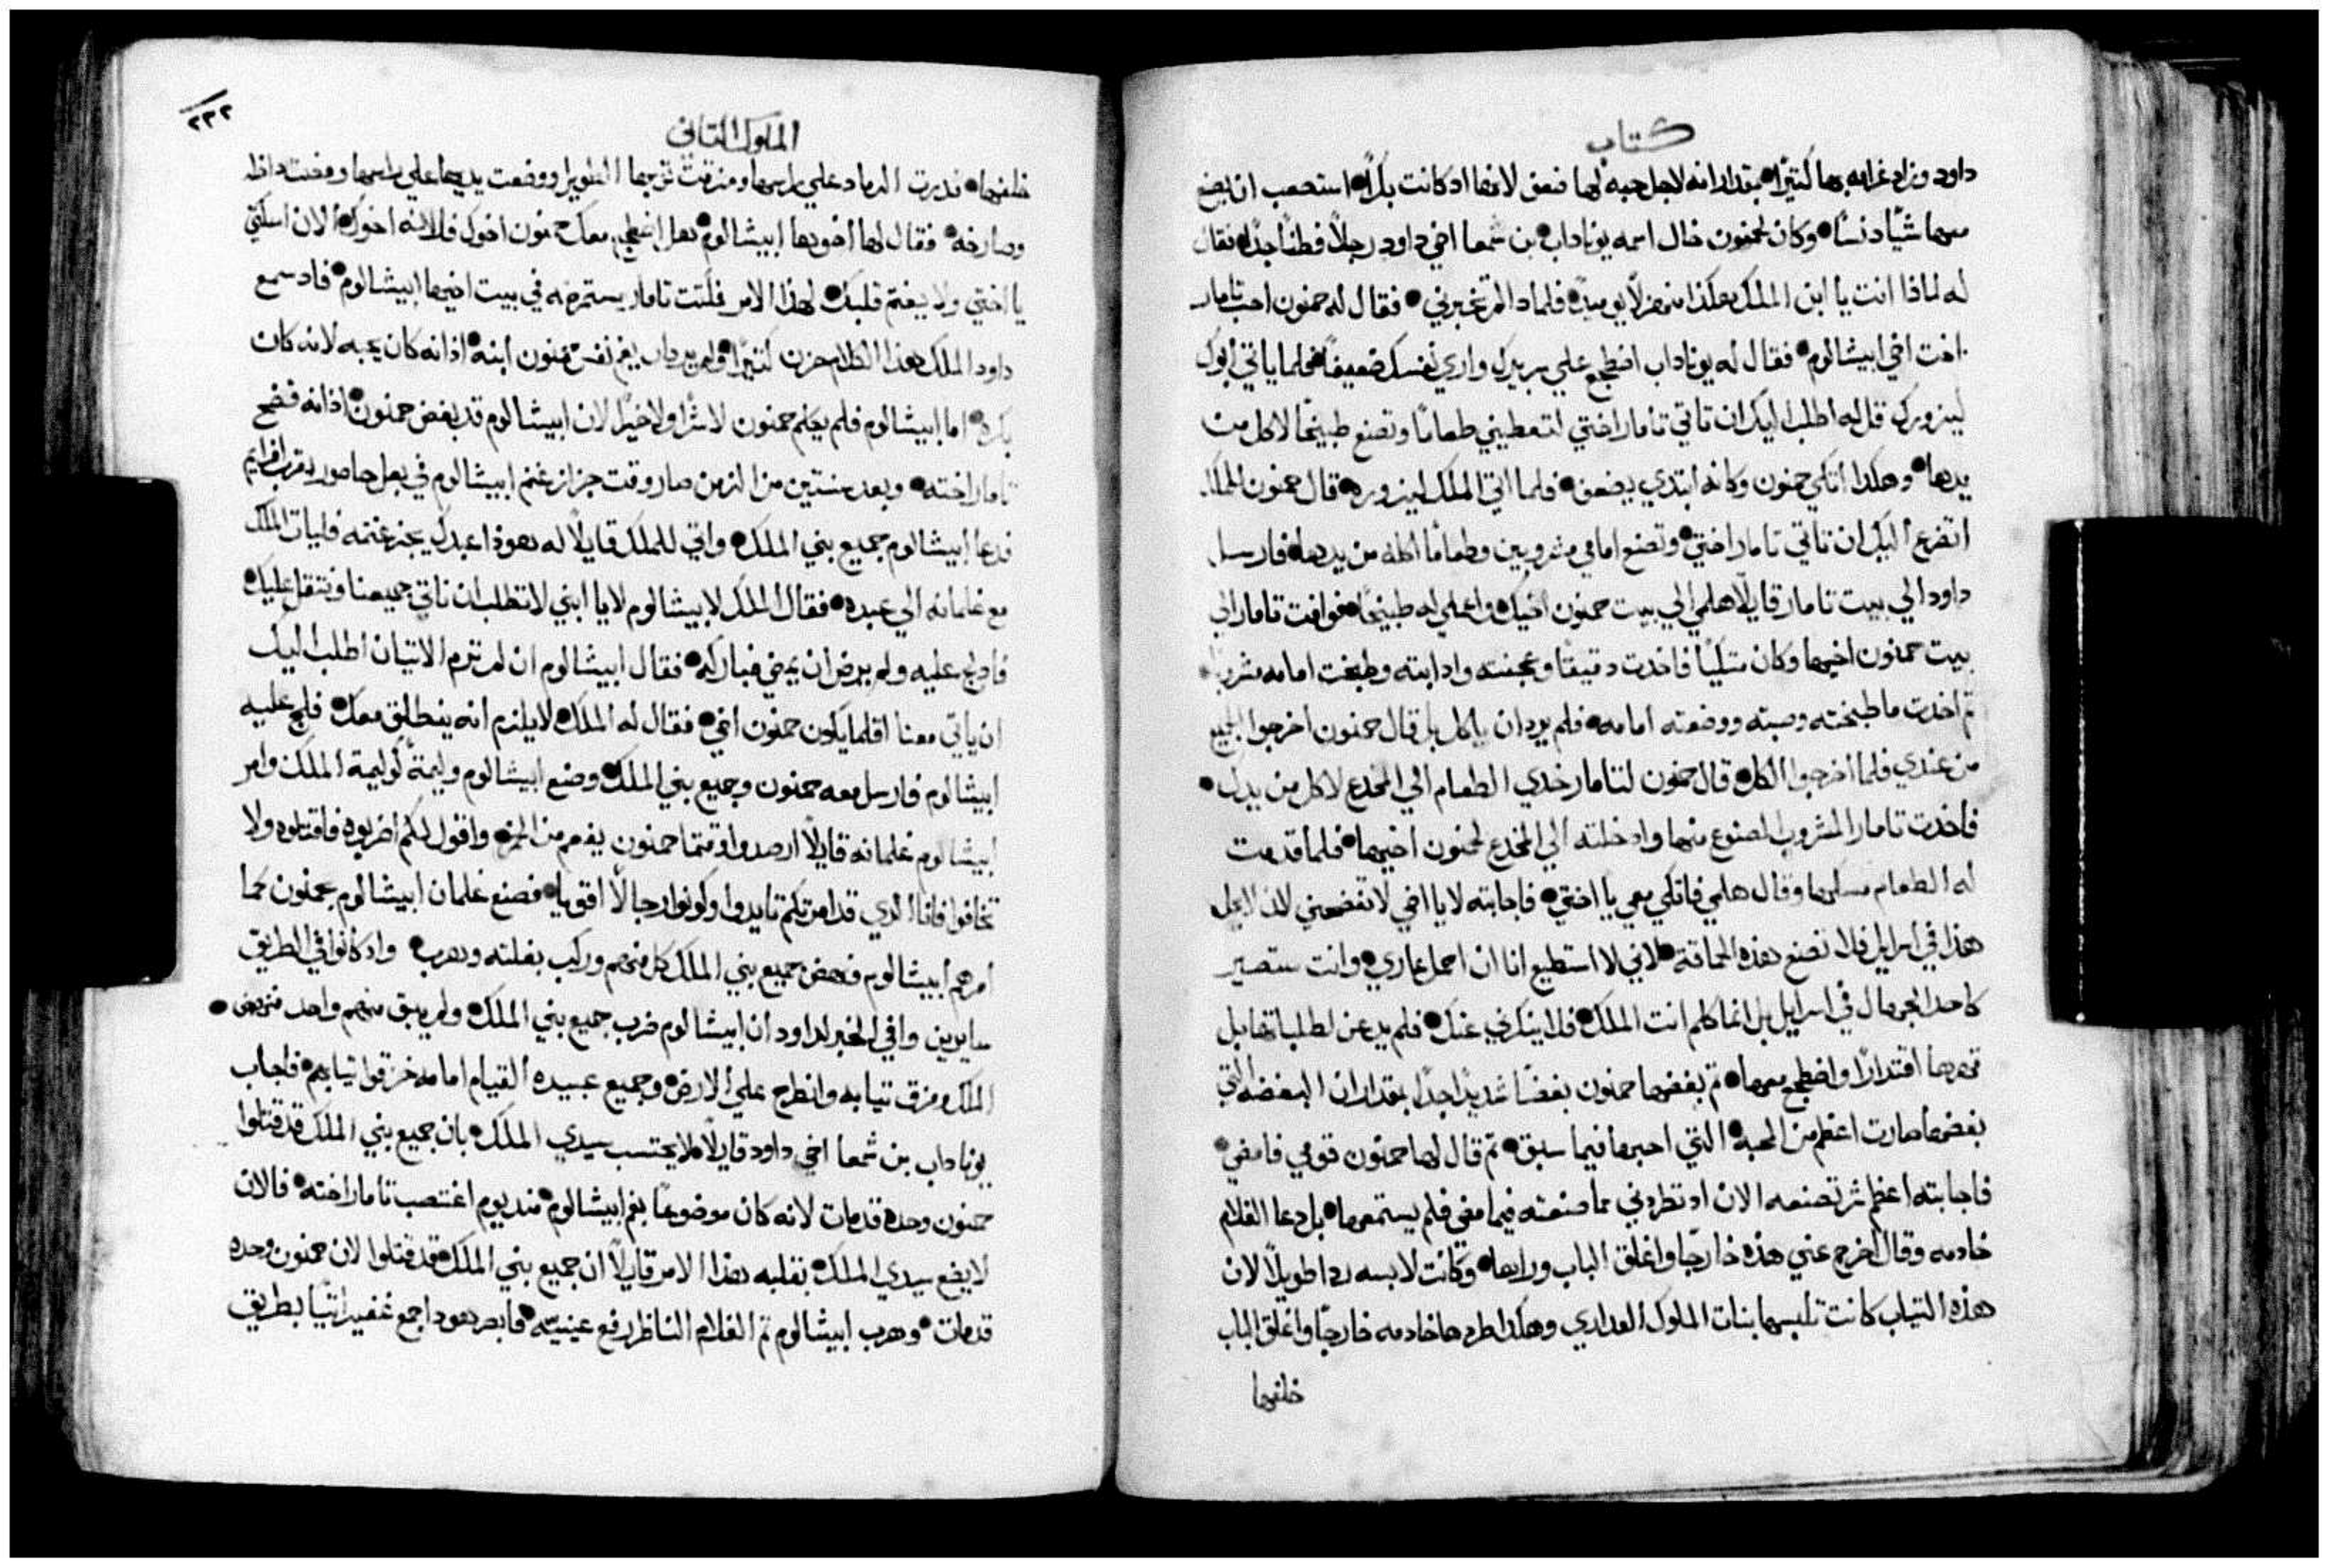 كتاب
داود وزاد غرامه بها كتيرًا بمقدار انه لاجل حبه لها ضعف لانها اد كانت بكرًا استصعب ان يصنع
معها شيًا دنسًا وكان لحمنون خال اسمه يوناداب بن شمعا اخي داود رجلًا فطنًا جدًا فقال
له لماذا انت يا ابن الملك هكذا منهزلًا يوميًا فلماد الم تخبرني فقال له حمنون احب تامار
اخت اخي ابيشالوم فقال له يوناداب اضطجع علي سريرك واري نفسك ضعيفًا فحلما ياتي ابوك
ليزورك قل له اطلب اليك ان تاتي تامار اختي لتعطيني طعامًا وتصنع طبيخًا لاكل من
يدها وهكدا اتكي حمنون وكانه ابتدي يضعف فلما اتي الملك ليزوره قال حمنون للملك
اتضرع اليك ان تاتي تامار اختي وتصنع امامي مشروبين وطعامًا اكله من يدها فارسل
داود الي بيت تامار قايلًا هلمي الي بيت حمنون اخيك واعملي له طبيخًا فوافت تامار الي
بيت حمنون اخيها وكان متكيًا فاخدت دقيقًا وعجنته وادابته وطبخت امامه مشروبًا
تم اخدت ما طبخته وصبته ووضعته امامه فلم يرد ان ياكل بل قال حمنون اخرجوا الجميع
من عندي فلما اخرجوا الكل قال حمنون لتامار خدي الطعام الي المخدع لاكل من يدك
فاخدت تامار المشروب المصنوع منها وادخلته الي المخدع لحمنون اخيها فلما قدمت
له الطعام مسكها وقال هلمي فاتكي معي يا اختي فاجابته لا يا اخي لا تفضحني لان لا يحل
هذا في اسرايل فلا تصنع هذه الحماقة لاني لا استطيع انا ان احمل عاري وانت ستصير
كاحد الجهال في اسرايل بل انما كلم انت الملك فلا ينكرني عنك فلم يدعن لطلباتها بل
قهرها اقتدارًا واضطجع معها تم بغضها حمنون بغضًا شديدًا جدًا بمقدار ان البغضه التي
بغضها صارت اعظم من المحبه التي احبها فيما سبق تم قال لها حمنون قومي فامضي
فاجابته اعظم شر تصنعه الان اد تطردني مما صنعته فيما مضي فلم يستمعها بل دعا الغلام
خادمه وقال اخرج عني هذه خارجًا واغلق الباب وراها وكانت لابسه ردا طويلًا لان
هذه التياب كانت تلبسها بنات الملوك العداري وهكدا طردها خادمه خارجًا واغلق الباب
خلفها
الملوك التاني
٢٣٢
خلفها فدرت الرماد علي راسها ومزقت توبها الطويل ووضعت يديها علي راسها ومضت داخله
وصارخه فقال لها اخوها ابيشالوم هل اضطجع معك حمنون اخوك فلانه اخوك الان اسكتي
يا اختي ولا يغتم قلبك لهذا الامر فلبتت تامار مستمره في بيت اخيها ابيشالوم فاد سمع
داود الملك هذا الكلام حزن كتيرًا ولم يرد ان يغم نفس حمنون ابنه اذ انه كان يحبه لانه كان
بكره اما ابيشالوم فلم يكلم حمنون لا شرًا ولا خيرًا لان ابيشالوم قد بغض حمنون اذ انه فضح
تامار اخته وبعد سنتين من الزمن صار وقت جزاز غنم ابيشالوم في بعل حاصور بقرب افرايم
فدعا ابيشالوم جميع بني الملك واتي للملك قايلًا له هوذا عبدك يجز غنمه فليات الملك
مع غلمانه الي عبده فقال الملك لابيشالوم لا يا ابني لا تطلب ان ناتي جميعنا ونتقل عليك
فاد لج عليه ولم يرض ان يمضي فباركه فقال ابيشالوم ان لم ترم الاتيان اطلب اليك
ان ياتي معنا اقلما يكون حمنون اخي فقال له الملك لا يلزم انه ينطلق معك فلج عليه
ابيشالوم فارسل معه حمنون وجميع بني الملك وصنع ابيشالوم وليمة كوليمة الملك وامر
ابيشالوم غلمانه قايلًا ارصدوا وقتما حمنون يفعم من الخمر واقول لكم اضربوه فاقتلوه ولا
تخافوا فانا الدي قد امرتكم تايدوا وكونوا رجالًا اقويا فصنع غلمان ابيشالوم بحمنون كما
امرهم ابيشالوم فنهض جميع بني الملك كل منهم وركب بغلته وهرب واد كانوا في الطريق
سايرين وافي الخبر لداود ان ابيشالوم ضرب جميع بني الملك ولم يبق منهم واحد فنهض
الملك ومزق تيابه وانطرح علي الارض وجميع عبيده القيام امامه خرقوا تيابهم فاجاب
يوناداب بن شمعا اخي داود قايلًا لا يحتسب سيدي الملك بان جميع بني الملك قد قتلوا
حمنون وحده قد مات لانه كان موضوعًا بفم ابيشالوم مند يوم اغتصب تامار اخته فالان
لا يضع سيدي الملك بقلبه هذا الامر قايلًا ان جميع بني الملك قد قتلوا لان حمنون وحده
قد مات وهرب ابيشالوم تم الغلام الناظر رفع عينيه فابصر هودا جمع غفير اتيًا بطريق